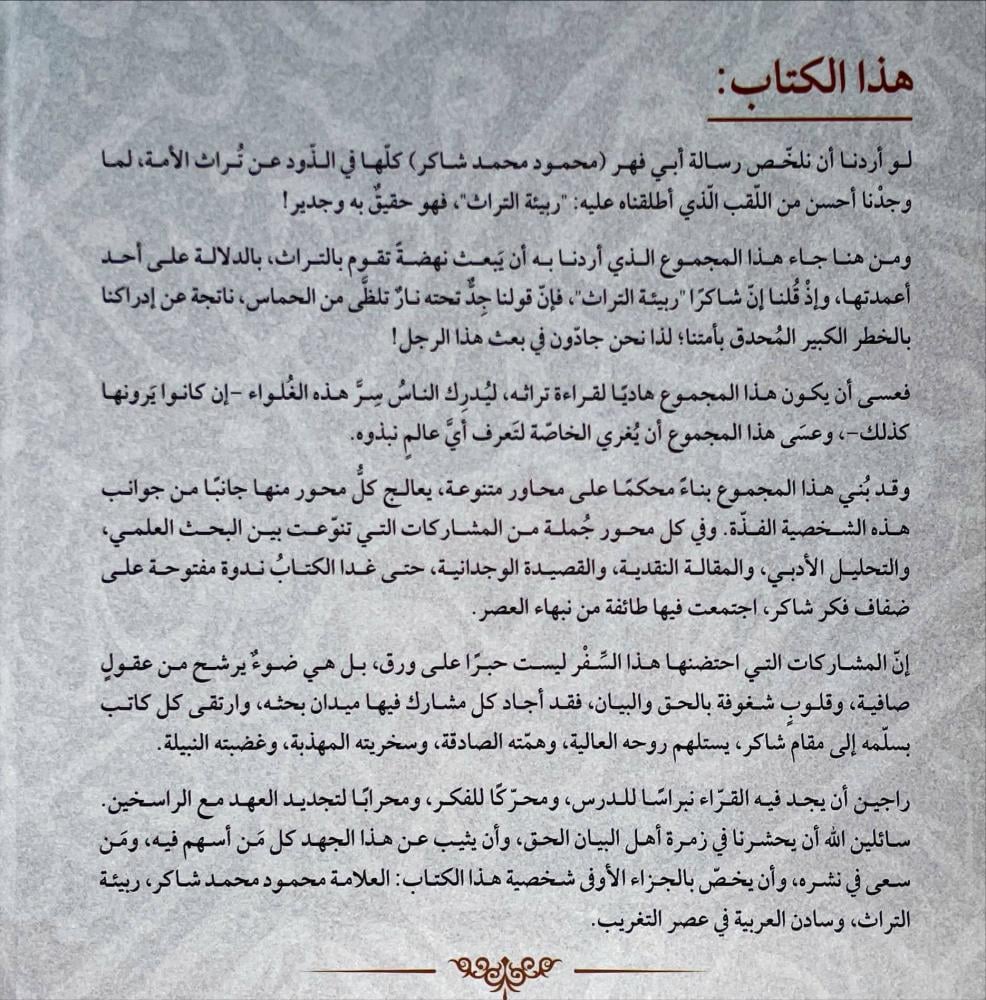 هذا الكتاب:
لو أردنا أن نلخّص رسالة أبي فهر (محمود محمد شاكر) كلّها في الذّود عن تُراث الأمة، لما
وجدْنا أحسن من اللّقب الّذي أطلقناه عليه: "ربيئة التراث"، فهو حقيقٌ به وجدير!
ومن هنا جاء هذا المجموع الذي أردنا به أن يَبعث نهضةً تقوم بالتراث، بالدلالة على أحد
أعمدتها، وإذْ قُلنا إنّ شاكرًا "ربيئة التراث"، فإنّ قولنا جِدٌّ تحته نارٌ تلظَّى من الحماس، ناتجة عن إدراكنا
بالخطر الكبير المُحدق بأمتنا؛ لذا نحن جادّون في بعث هذا الرجل!
فعسى أن يكون هذا المجموع هاديًا لقراءة تراثه، ليُدرِك الناسُ سِرَّ هذه الغُلواء –إن كانوا يَرونها
كذلك–، وعسَى هذا المجموع أن يُغري الخاصّة لتَعرف أيَّ عالمٍ نبذوه.
وقد بُني هذا المجموع بناءً محكمًا على محاور متنوعة، يعالج كلُّ محور منها جانبًا من جوانب
هذه الشخصية الفذّة. وفي كل محور جُملة من المشاركات التي تنوّعت بين البحث العلمي،
والتحليل الأدبي، والمقالة النقدية، والقصيدة الوجدانية، حتى غدا الكتابُ ندوة مفتوحة على
ضفاف فكر شاكر، اجتمعت فيها طائفة من نبهاء العصر.
إنّ المشاركات التي احتضنها هذا السِّفْر ليست حبرًا على ورق، بل هي ضوءٌ يرشح من عقولٍ
صافية، وقلوبٍ شغوفة بالحق والبيان، فقد أجاد كل مشارك فيها ميدان بحثه، وارتقى كل كاتب
بسلّمه إلى مقام شاكر، يستلهم روحه العالية، وهمّته الصادقة، وسخريته المهذبة، وغضبته النبيلة.
راجين أن يجد فيه القرّاء نبراسًا للدرس، ومحرّكًا للفكر، ومحرابًا لتجديد العهد مع الراسخين.
سائلين الله أن يحشرنا في زمرة أهل البيان الحق، وأن يثيب عن هذا الجهد كل مَن أسهم فيه، ومَن
سعى في نشره، وأن يخصّ بالجزاء الأوفى شخصية هذا الكتاب: العلامة محمود محمد شاكر، ربيئة
التراث، وسادن العربية في عصر التغريب.